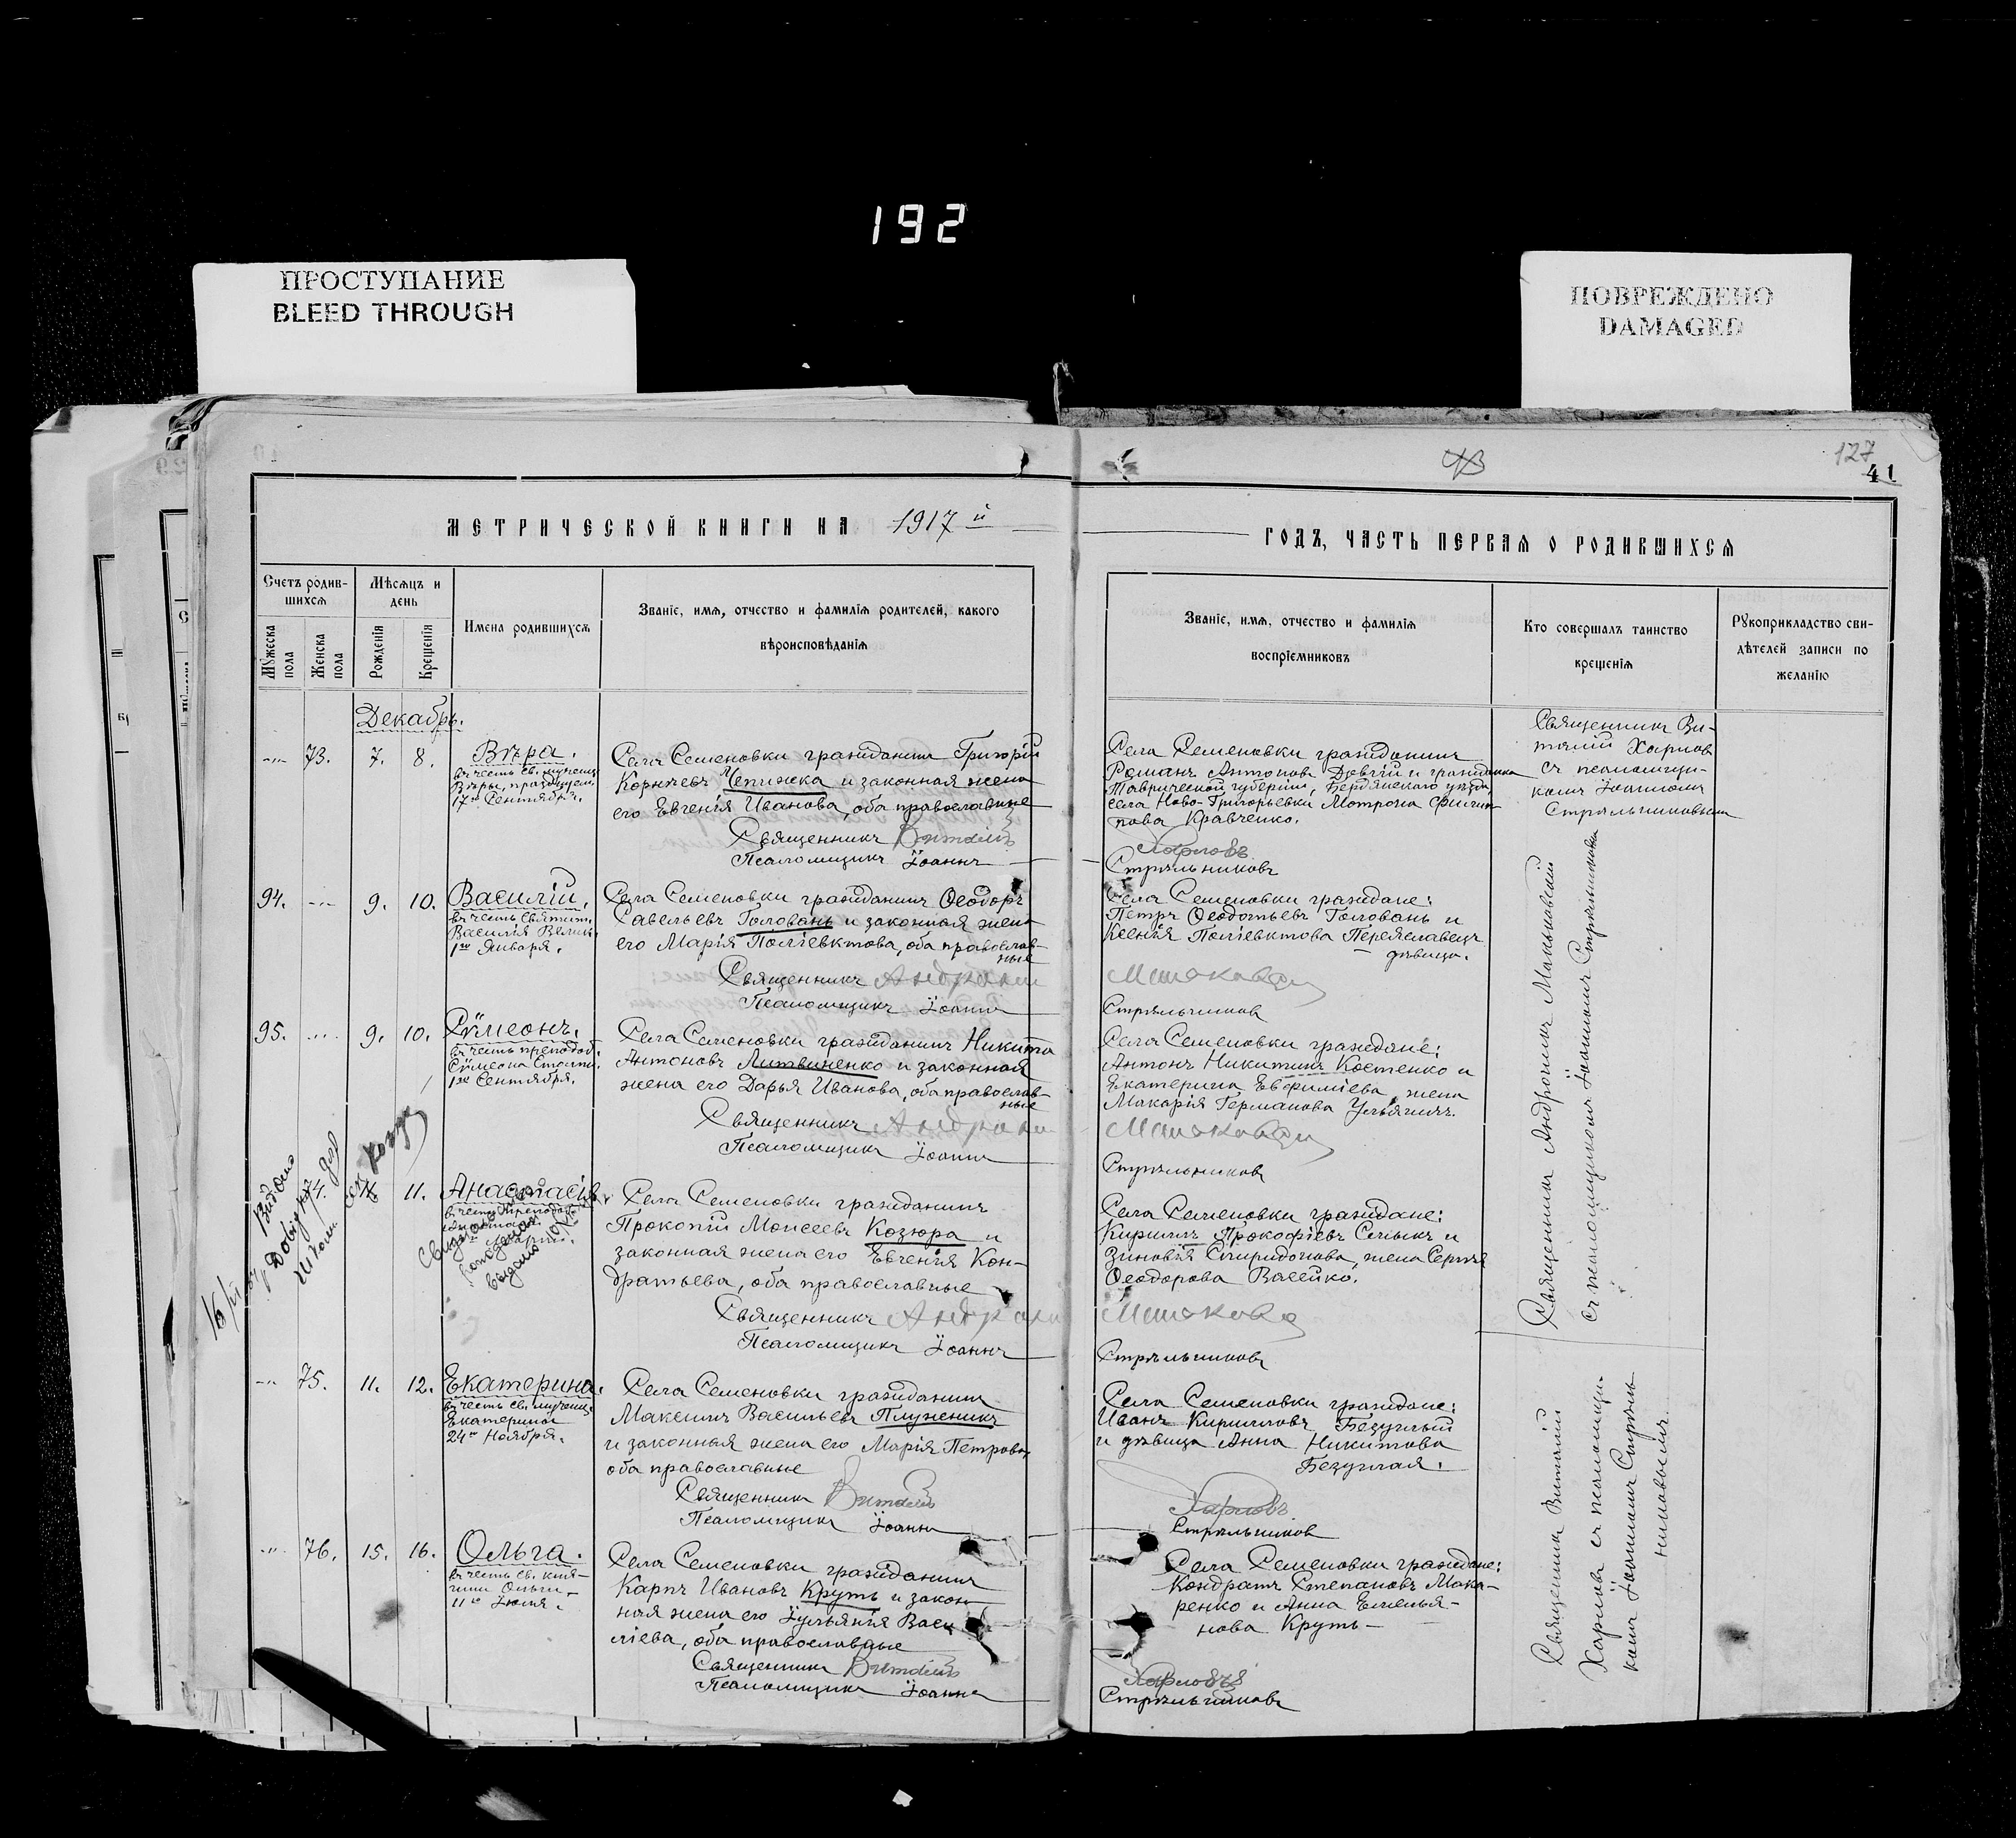 192
ПРОСТУПАНИЕ
BLEED THROUGH
ПОВРЕЖДЕНО
DAMAGED
127
41
МЕТРИЧЕСКОЙ КНИГИ НА 1917 й
ГОДЪ, ЧАСТЬ ПЕРВАЯ О РОДИВШИХСЯ
Счетъ родив-
шихся
Мужеска пола
Женска пола
Мѣсяцъ и
день
Рожденія
Крещенія
Имена родившихся
Званіе, имя, отчество и фамилія родителей, какого
вѣроисповѣданія
Званіе, имя, отчество и фамилія
воспріемниковъ
Кто совершалъ таинство
крещенія
Рукоприкладство сви-
дѣтелей записи по
желанію
Декабрь.
73. 7. 8. Вѣра.
въ честь св. мучениц.
Вѣры, празднуем.
17го Сентября.
Села Семеновки гражданинъ Григорій
Корнѣевъ Чепижка и законная жена
его Евгенія Иванова, оба православные
Священникъ Виталій
Псаломщикъ Іоаннъ
Села Семеновки гражданинъ
Романъ Антоновъ и гражданка
Таврической губерніи, Бердянскаго уѣзда,
села Ново-Григорьевки Мотрона Филип-
пова Кравченко.
Харловъ
Стрѣльниковъ
Священникъ Ви-
талій Харловъ
съ псаломщи-
комъ Іоанномъ
Стрѣльниковымъ
94. 9. 10. Василій.
въ честь Святит.
Василія Велик.
1го Января.
Села Семеновки гражданинъ Ѳеодоръ
Савельевъ Головань и законная жена
его Марія Поліевктова, оба православ-
ные
Священникъ Андрони
Псаломщикъ Іоаннъ
Села Семеновки граждане:
Петръ Ѳеодотьевъ Головань и
Ксенія Поліевктова Переяславецъ
дѣвица.
Стрѣльниковъ
95. 9. 10. Сѵмеонъ.
въ честь преподоб.
Сѵмеона Столпн.
1го Сентября.
Села Семеновки гражданинъ Никита
Антоновъ Литвиненко и законная
жена его Дарья Иванова, оба православ-
ные
Священникъ Андрони
Псаломщикъ Іоаннъ
Села Семеновки граждане:
Антонъ Никитинъ Костенко и
Екатерина Евфиміева, жена
Макарія Германова
Стрѣльниковъ
Священникъ Андроникъ
съ псаломщикомъ Іоанномъ Стрѣльниковымъ
Видано
74. 11. Анастасія
въ честь преподоб.
Села Семеновки гражданинъ
Прокопій Моисеевъ Козюра и
законная жена его Евгенія Кон-
дратьева, оба православные
Священникъ Андрони
Псаломщикъ Іоаннъ
Села Семеновки граждане:
Кириллъ Прокофіевъ и
Зиновія Спиридонова, жена Сергѣя
Ѳеодорова Васейко.
Стрѣльниковъ
75. 11. 12. Екатерина.
въ честь св. мучениц.
Екатерины
24го Ноября.
Села Семеновки гражданинъ
Максимъ Васильевъ Плуженикъ
и законная жена его Марія Петрова,
оба православные
Священникъ Виталій
Псаломщикъ Іоаннъ
Села Семеновки граждане:
Иванъ Кирилловъ Безуглый
и дѣвица Анна Никитова
Безуглая.
Харловъ
Стрѣльниковъ
76. 15. 16. Ольга.
въ честь св. кня-
гини Ольги
11го Іюля.
Села Семеновки гражданинъ
Карпъ Ивановъ Круть и закон-
ная жена его Іульянія Васи
ліева, оба православные
Священникъ Виталій
Псаломщикъ Іоаннъ
Села Семеновки граждане:
Кондратъ Степановъ Мака-
ренко и Анна Емелья-
нова Круть
Харловъ
Стрѣльниковъ
Священникъ Виталій
Харловъ съ псаломщи-
комъ Іоанномъ Стрѣль-
никовымъ.